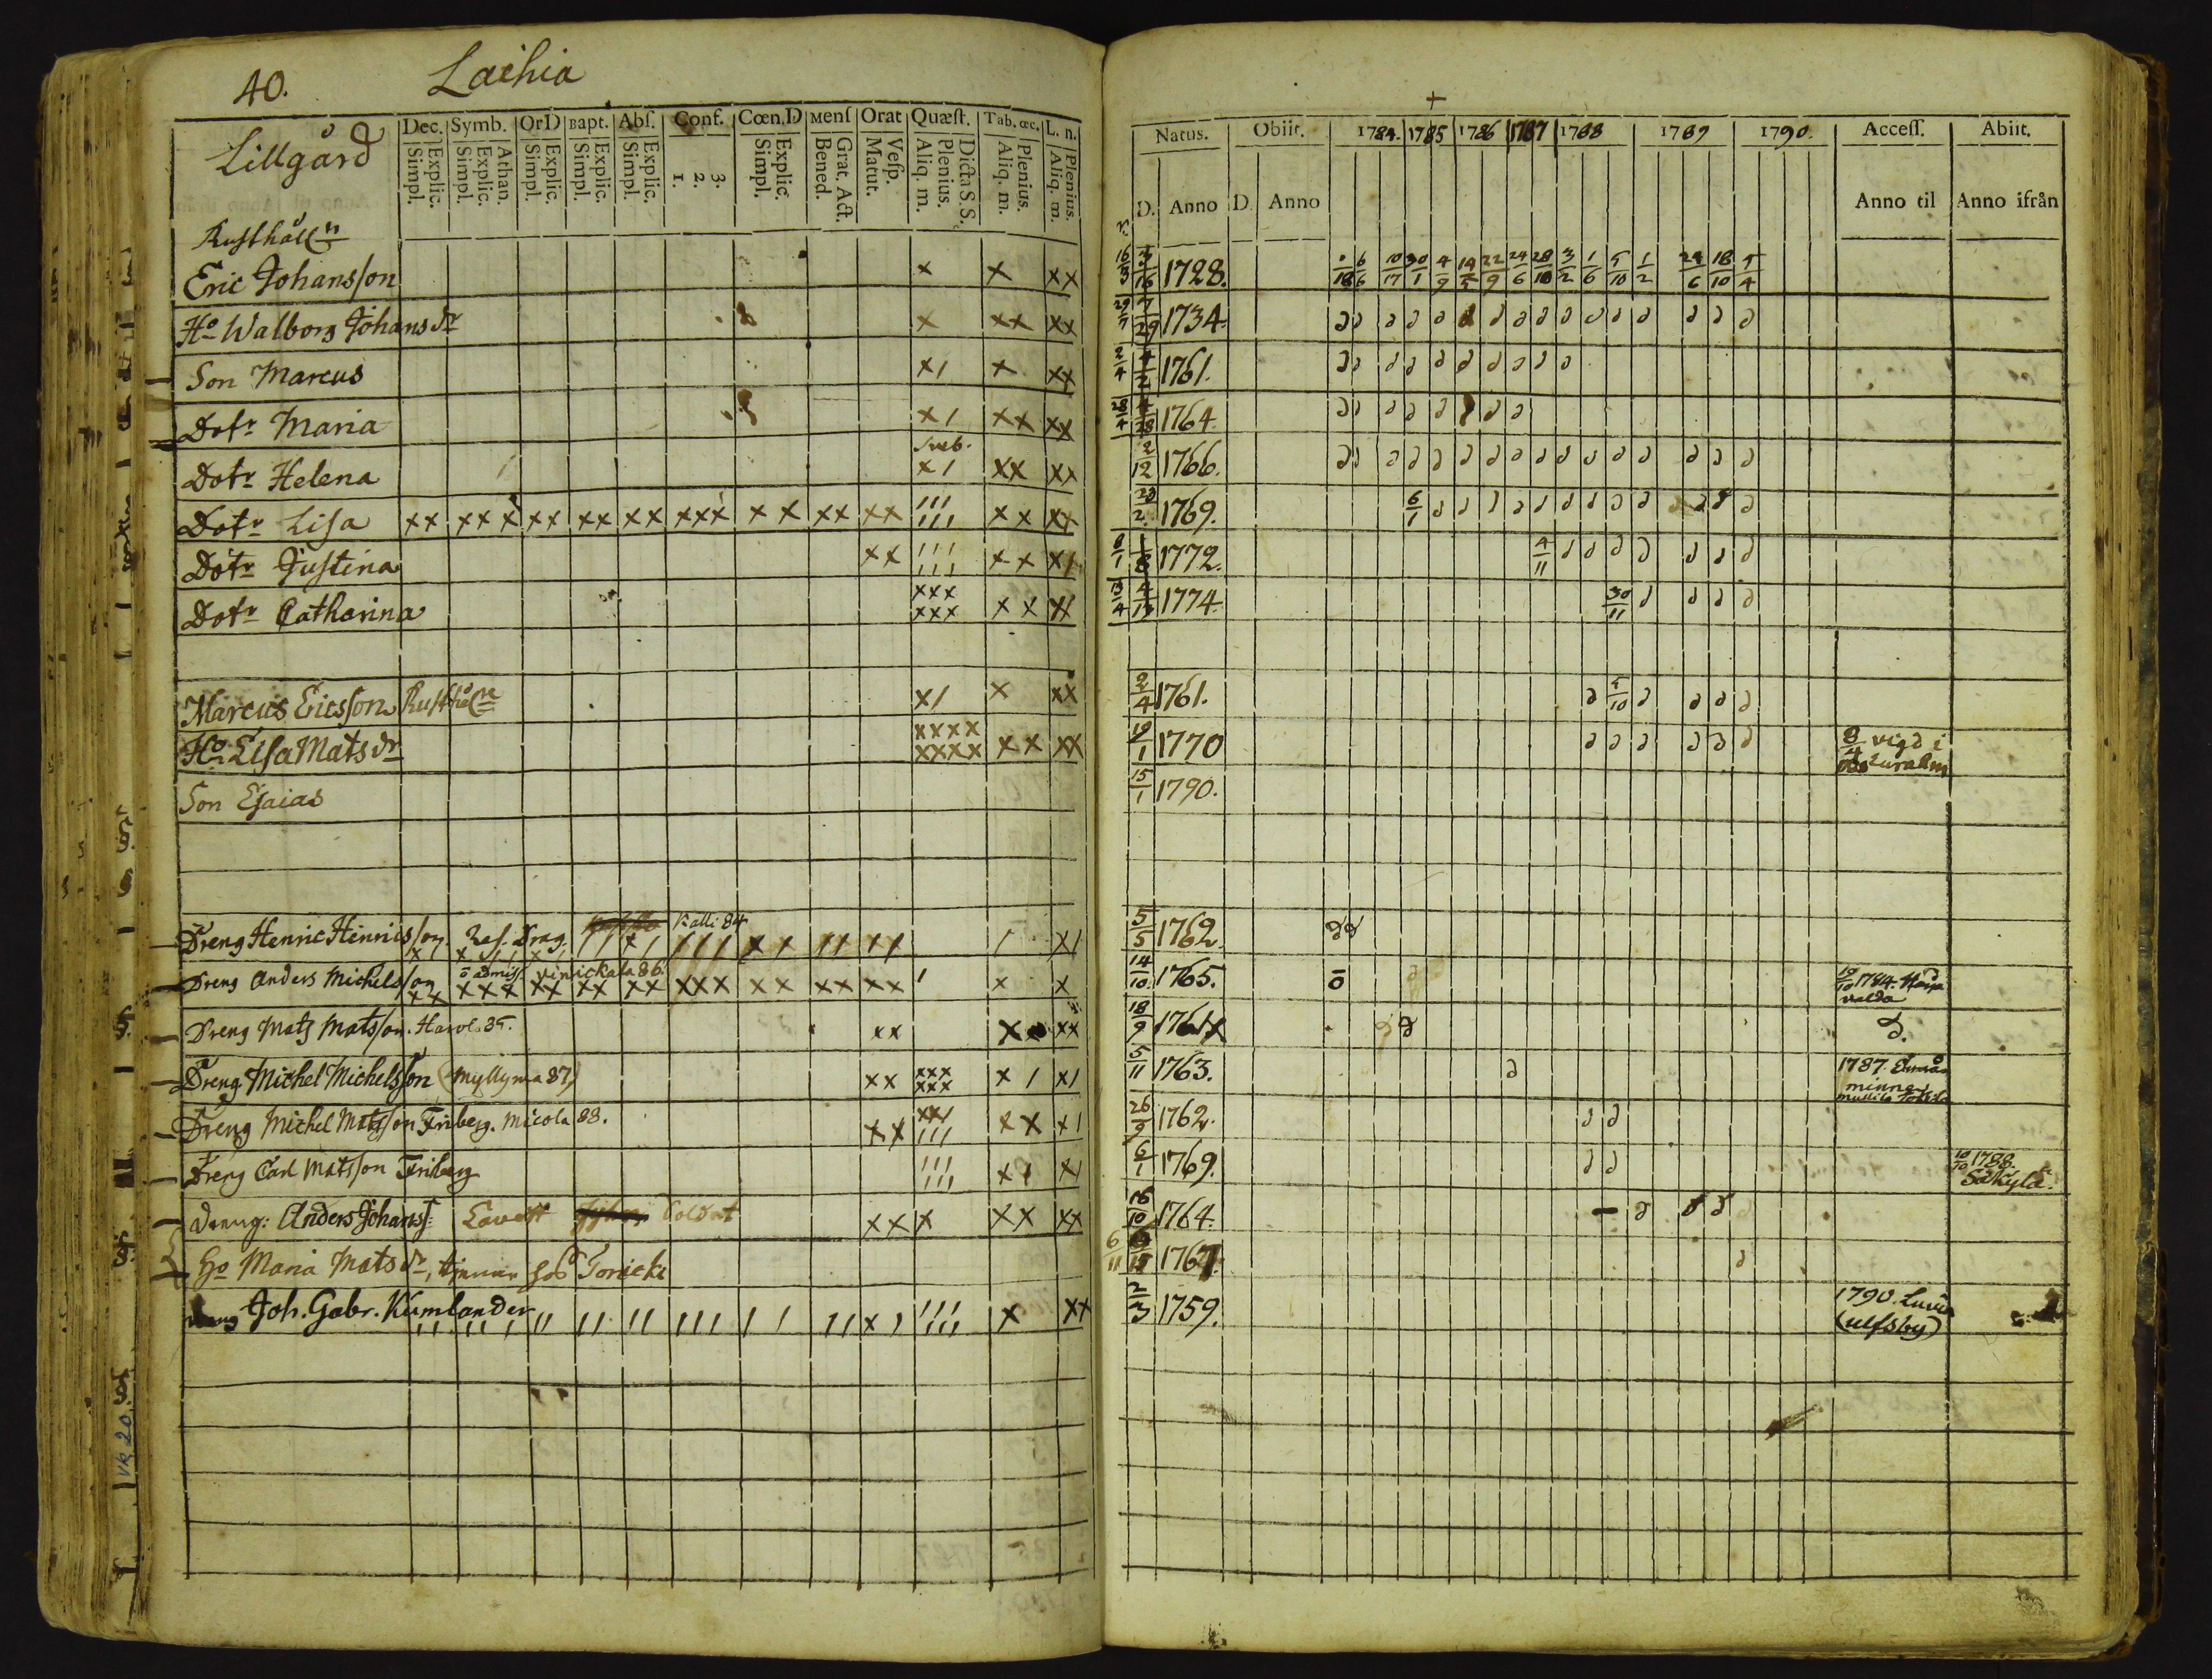 40. Laihia
Lillgård
Dec. Symb. OrD Bapt. Abſ. Conf. Cœn.D Menſ Orat Quæſt. Tab. œc. L. n.
Explic. Simpl.
Athan. Explic. Simpl.
Explic. Simpl.
Explic. Simpl.
Explic. Simpl.
3. 2. 1.
Explic. Simpl.
Grat. Act. Bened.
Veſp. Matut.
Dicta S.S. Plenius. Aliq. m.
Plenius. Aliq. m.
Plenius. Aliq. m.
Natus. Obiit. 1784. 1785 1786 1787 1788 1789 1790. Acceſſ. Abiit.
D. Anno D. Anno Anno til Anno ifrån
Rusthåll
Eric Johansſon x x xx 16/3 1728. 6/6 10/17 30/1 4/9 22/9 24/6 28/10 3/2 1/6 5/10 1/2 24/6 18/10 5/4
Ho Walborg Johans dr x xx xx 1734.
Son Marcus x/ x xx 2/4 1761.
Dotr Maria x/ xx xx 28/4 1764
Dotr Helena x/ xx xx 2/12 1766.
Dotr Liſa xx xxx xx xx xx xxx xx xx xx /// /// xx xx 23/2 1769. 6/1
Dotr Juſtina xx /// /// xx x/ 8/1 1772. 4/11
Dotr Catharina xxx xxx xx xx 13/4 1774 30/11
Marcus Ericsſon Rusthål x/ x xx 2/4 1761. 5/10
Ho Liſa Mats dr xxxx xxxx xx xx 19/1 1770 8/4 vigd i
Son Eſaias 15/1 1790.
Dreng Henric Henricsſon Reſ. Drag. Kalli 84 5/5 1762
Dreng Anders Michelsſon ō admiſſ. vinickala 86. 14/10 1765. ō 19/10 1784.
Dreng Mats Matsſon. Harol. 85. xx x xx 18/9 1761
Dreng Michel Michelsſon (Myllyma 87) xx xxx xxx x/ x/ 5/11 1763. 1787.
Dreng Michel Matsſon Friberg. Micola 88. xx xx/ /// xx x/ 26/9 1762.
Dreng Carl Matsſon Friberg /// /// x/ x/ 6/1 1769. 10/10 1788. Säkylä.
Dreng: Anders Johansſ: Lavast Soldat xxx xx xx 16/10 1764
Ho Maria Mats dr, tjenar hos Tonicki 6/11 1767.
Dreng Joh. Gabr. Kumlander x/ x xx 2/3 1759. 1790. Luvia
(ulfsby)
VK 20